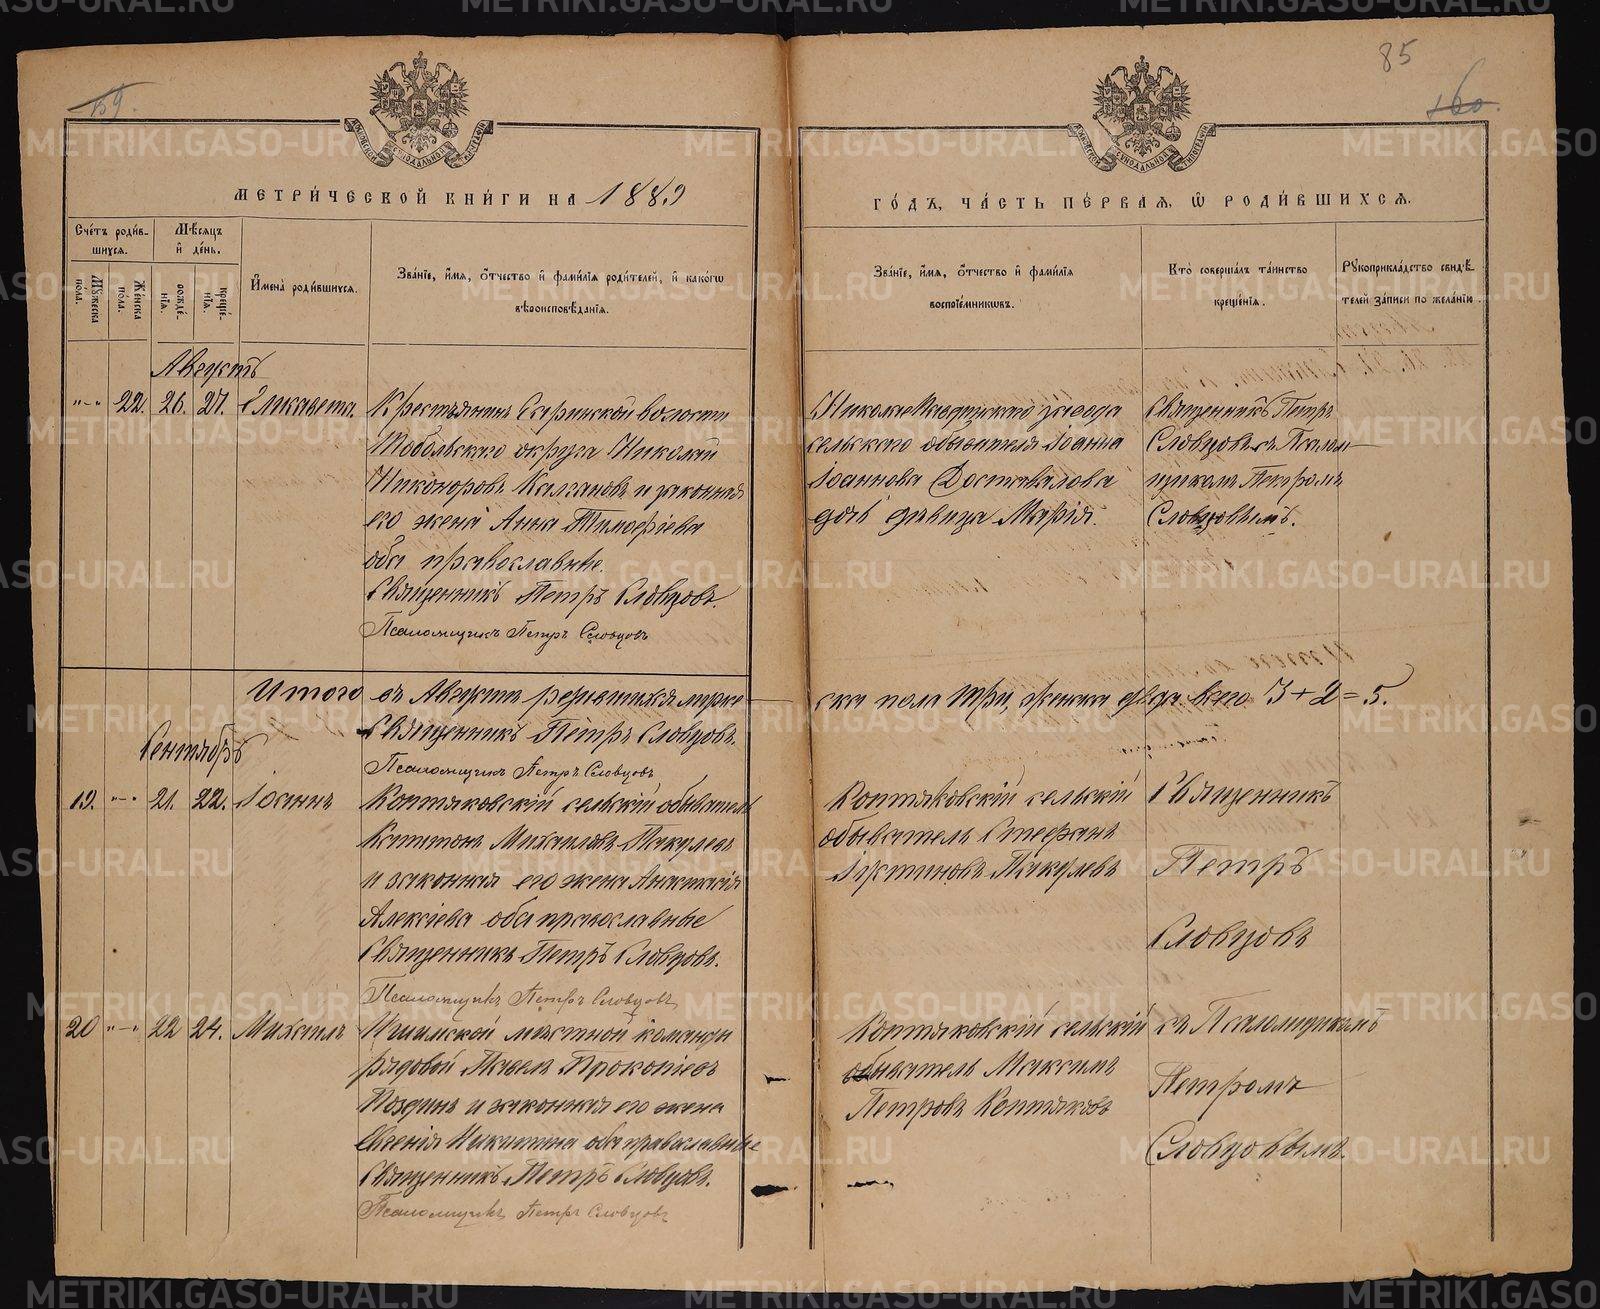 85
159.
160.
МЕТРИ́ЧЕСКОЙ КНИ́ГИ НА 1889
ГО́ДЪ, ЧА́СТЬ ПЕ́РВАЯ, Ѡ РОДИ́ВШИХСЯ.
Сче́тъ роди́вшихся.
Мѣ́сяцъ и де́нь.
Му́жеска по́ла.
Же́нска по́ла.
рожде́нїя.
креще́нїя.
И҆мена̀ роди́вшихся.
Зва́нїе, и҆́мя, ѻ҆́тчество и҆ фами́лїя роди́телей, и҆ како́гѡ
вѣроисповѣ́данїя.
Зва́нїе, и҆́мя, ѻ҆́тчество и҆ фами́лїя
воспрїе́мниковъ.
Кто̀ соверша́лъ та́инство
креще́нїя.
Рꙋкоприкла́дство свидѣ́-
телей за́писи по жела́нїю.
Августъ
"-" 22. 26. 27. Елисавета.
Крестьянинъ Есаринской волости
Тобольскаго округа Николай
Никоноровъ Калгановъ и законная
его жена Анна Тимофіева
оба православные.
Священникъ Петръ Словцовъ.
Псаломщикъ Петръ Словцовъ
Николае-Павдинскаго завода
сельскаго обывателя Іоанна
Іоаннова Доставалова
дочь девица Марія.
Священникъ Петръ
Словцовъ съ Псалом-
щикомъ Петромъ
Словцовымъ.
Итого въ Августѣ родившихся муже-
ска пола три, женска два. Всего 3+2=5.
Священникъ Петръ Словцовъ.
Псаломщикъ Петръ Словцовъ
Сентябрь
19. "-" 21. 22. Іоаннъ
Коптяковскій сельскій обыватель
Капитонъ Михаиловъ Пакулевъ
и законная его жена Анастасія
Алексіева оба православные
Священникъ Петръ Словцовъ.
Псаломщикъ Петръ Словцовъ
Коптяковскій сельскій
обыватель Стефанъ
Іустиновъ Пакулевъ
Священникъ
Петръ
Словцовъ
20 "-" 22 24. Михаилъ
Ишимской мѣстной команды
рядовой Павелъ Прокопіевъ
Поздинъ и законная его жена
Евгенія Никитина оба православные
Священникъ Петръ Словцовъ.
Псаломщикъ Петръ Словцовъ
Коптяковскій сельскій
обыватель Максимъ
Петровъ Коптяковъ
съ Псаломщикомъ
Петромъ
Словцовымъ.
METRIKI.GASO-URAL.RU